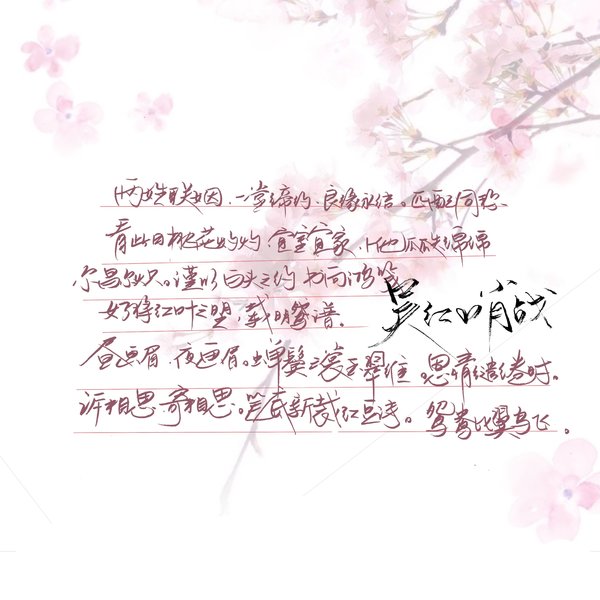 两姓联姻、一堂缔约、良缘永结。匹配同称、
看此日桃花灼灼、宜室宜家、他瓜瓞绵绵
尔昌尔炽。谨以白头之约 书向鸿笺
好将红叶之盟、载明鸳谱。
吴红哨战
昼画眉、夜画眉。蝉鬓 翠 思情缱绻时。
诉相思、寄相思。笔底新裁红豆诗。鸳鸯比翼鸟飞。